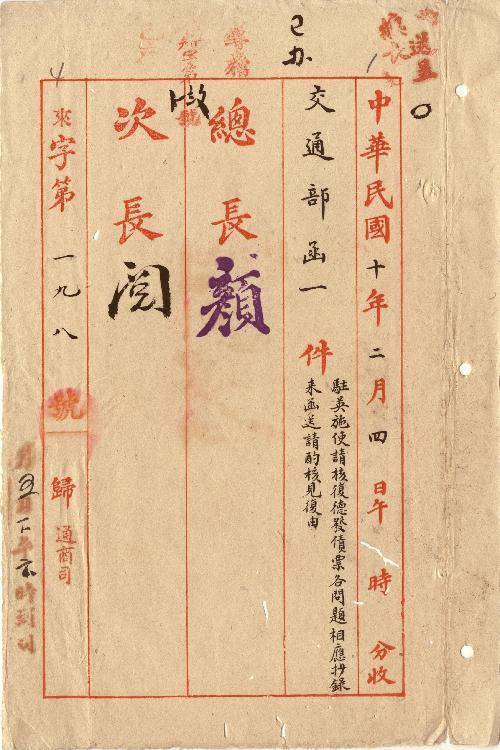 已办
中華民國十年二月四日午 時 分收
交通部函一件
駐英施使請核復德發債票各問題相應抄錄
来函送請酌核見復由
總長 顏
次長 閱
來字第一九八號 歸 通商司
時到司